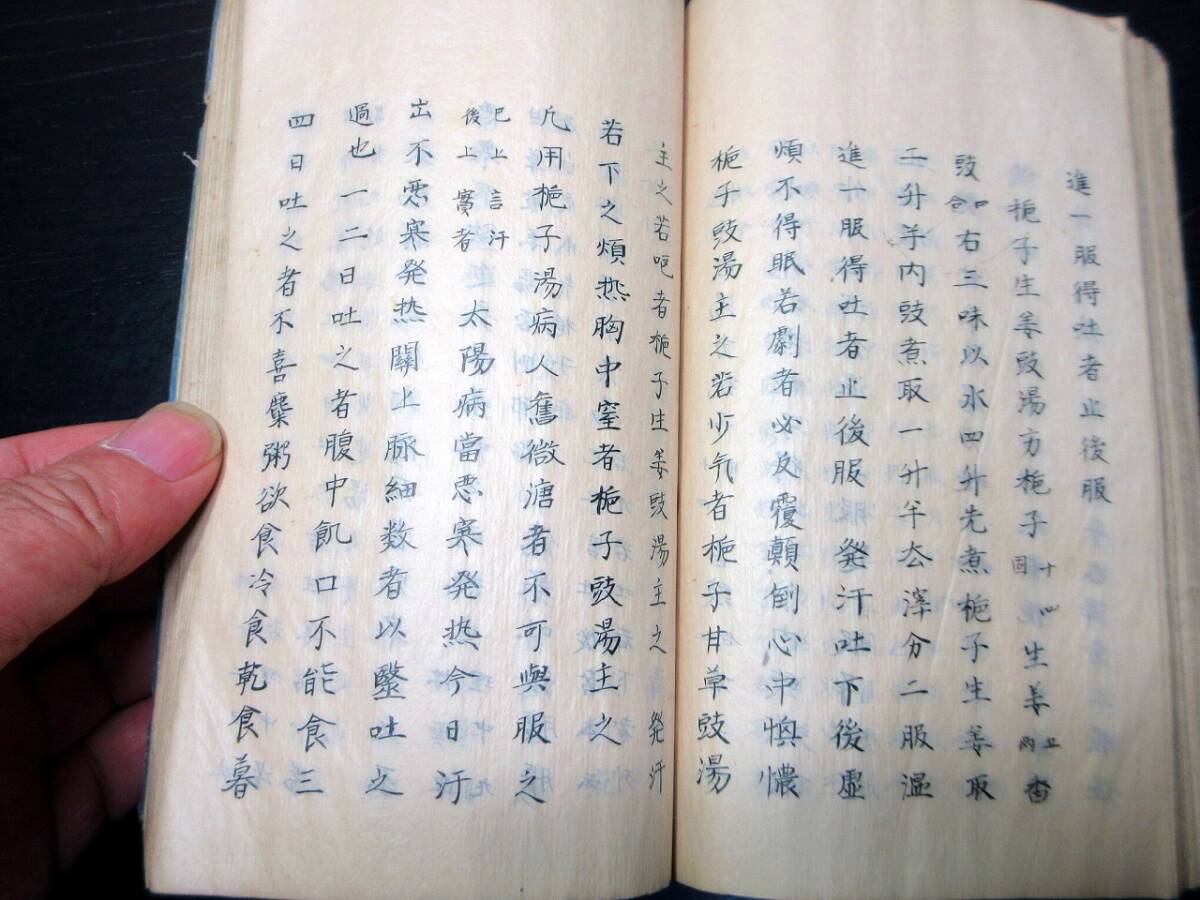 進一服得吐者止後服
梔子生姜豉湯方梔子十四固生姜五两香
豉四合右三味以水四升先煮梔子生姜取
二升半内豉煮取一升半厺滓分二服温
進一服得吐者止後服發汗吐下後虚
煩不得眠若劇者必反覆顛倒心中懊憹
梔子豉湯主之若少気者梔子甘草豉湯
主之若呕者梔子生姜豉湯主之發汗
若下之煩热胸中窒者梔子豉湯主之
凡用梔子湯病人舊微溏者不可與服之
已上言汗後上實者太陽病當悪寒発热今日汗
出不悪寒発热關上脉細数者以醫吐之
過也一二日吐之者腹中飢口不能食三
四日吐之者不喜糜粥欲食冷食乾食暮